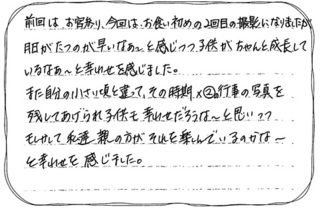 前回は、お宮参り、今回は、お食い初めの2回目の撮影になりましたが
月日がたつのが早いなぁ〜と感じつつ子供がちゃんと成長して
いるなぁ〜と幸わせを感じました。
また自分の小さい頃と違って、その時期×2の行事の写真を
残してあげられ子供も幸わせだろうな〜と思いつつ
もしかして私達親の方がそれを楽しんでいるのかな〜
と幸わせを感じました。